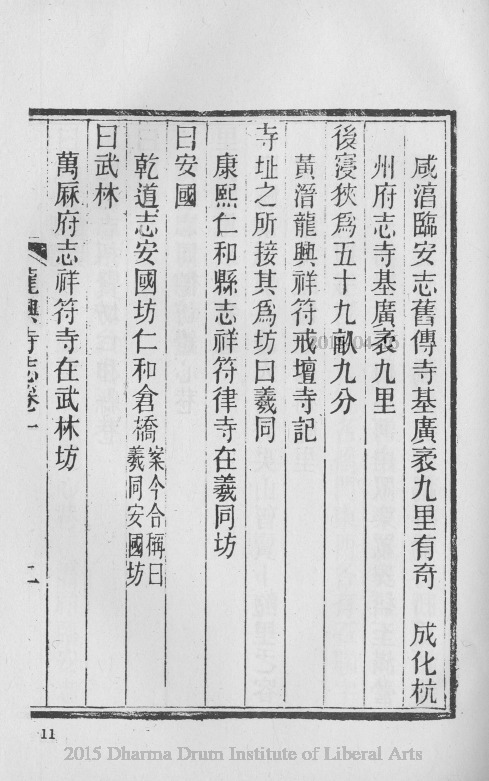 咸淳臨安志舊傳寺基廣袤九里有奇　成化杭
州府志寺基廣袤九里
後寖狹爲五十九畝九分
黃溍龍興祥符戒壇寺記
寺址之所接其爲坊曰羲同
康熙仁和縣志祥符律寺在羲同坊
曰安國
乾道志安國坊仁和倉橋案今合稱曰羲同安國坊
曰武林
萬厤府志祥符寺在武林坊
龍興寺志卷一　二
11
2015 Dharma Drum Institute of Liberal Arts